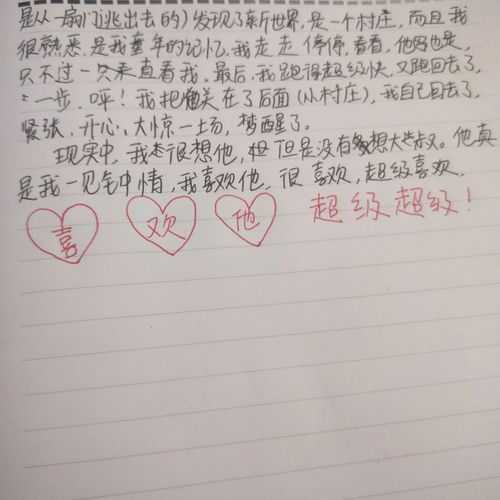 是从一扇门逃出去的）发现了新世界，是一个村庄，而且我
很熟悉，是我童年的记忆，我走走停停，看看，他呢也是，
只不过一只来直看我。最后，我跑得超级快，又跑回去了，
一步，呼！我把他关在了后面（从村庄），我自己回去了，
紧张，开心，大惊一场，梦醒了。
现实中，我很想他，但是没有想大叔。他真
是我一见钟情，我喜欢他，很喜欢，超级喜欢，
喜 欢 他 超级超级！